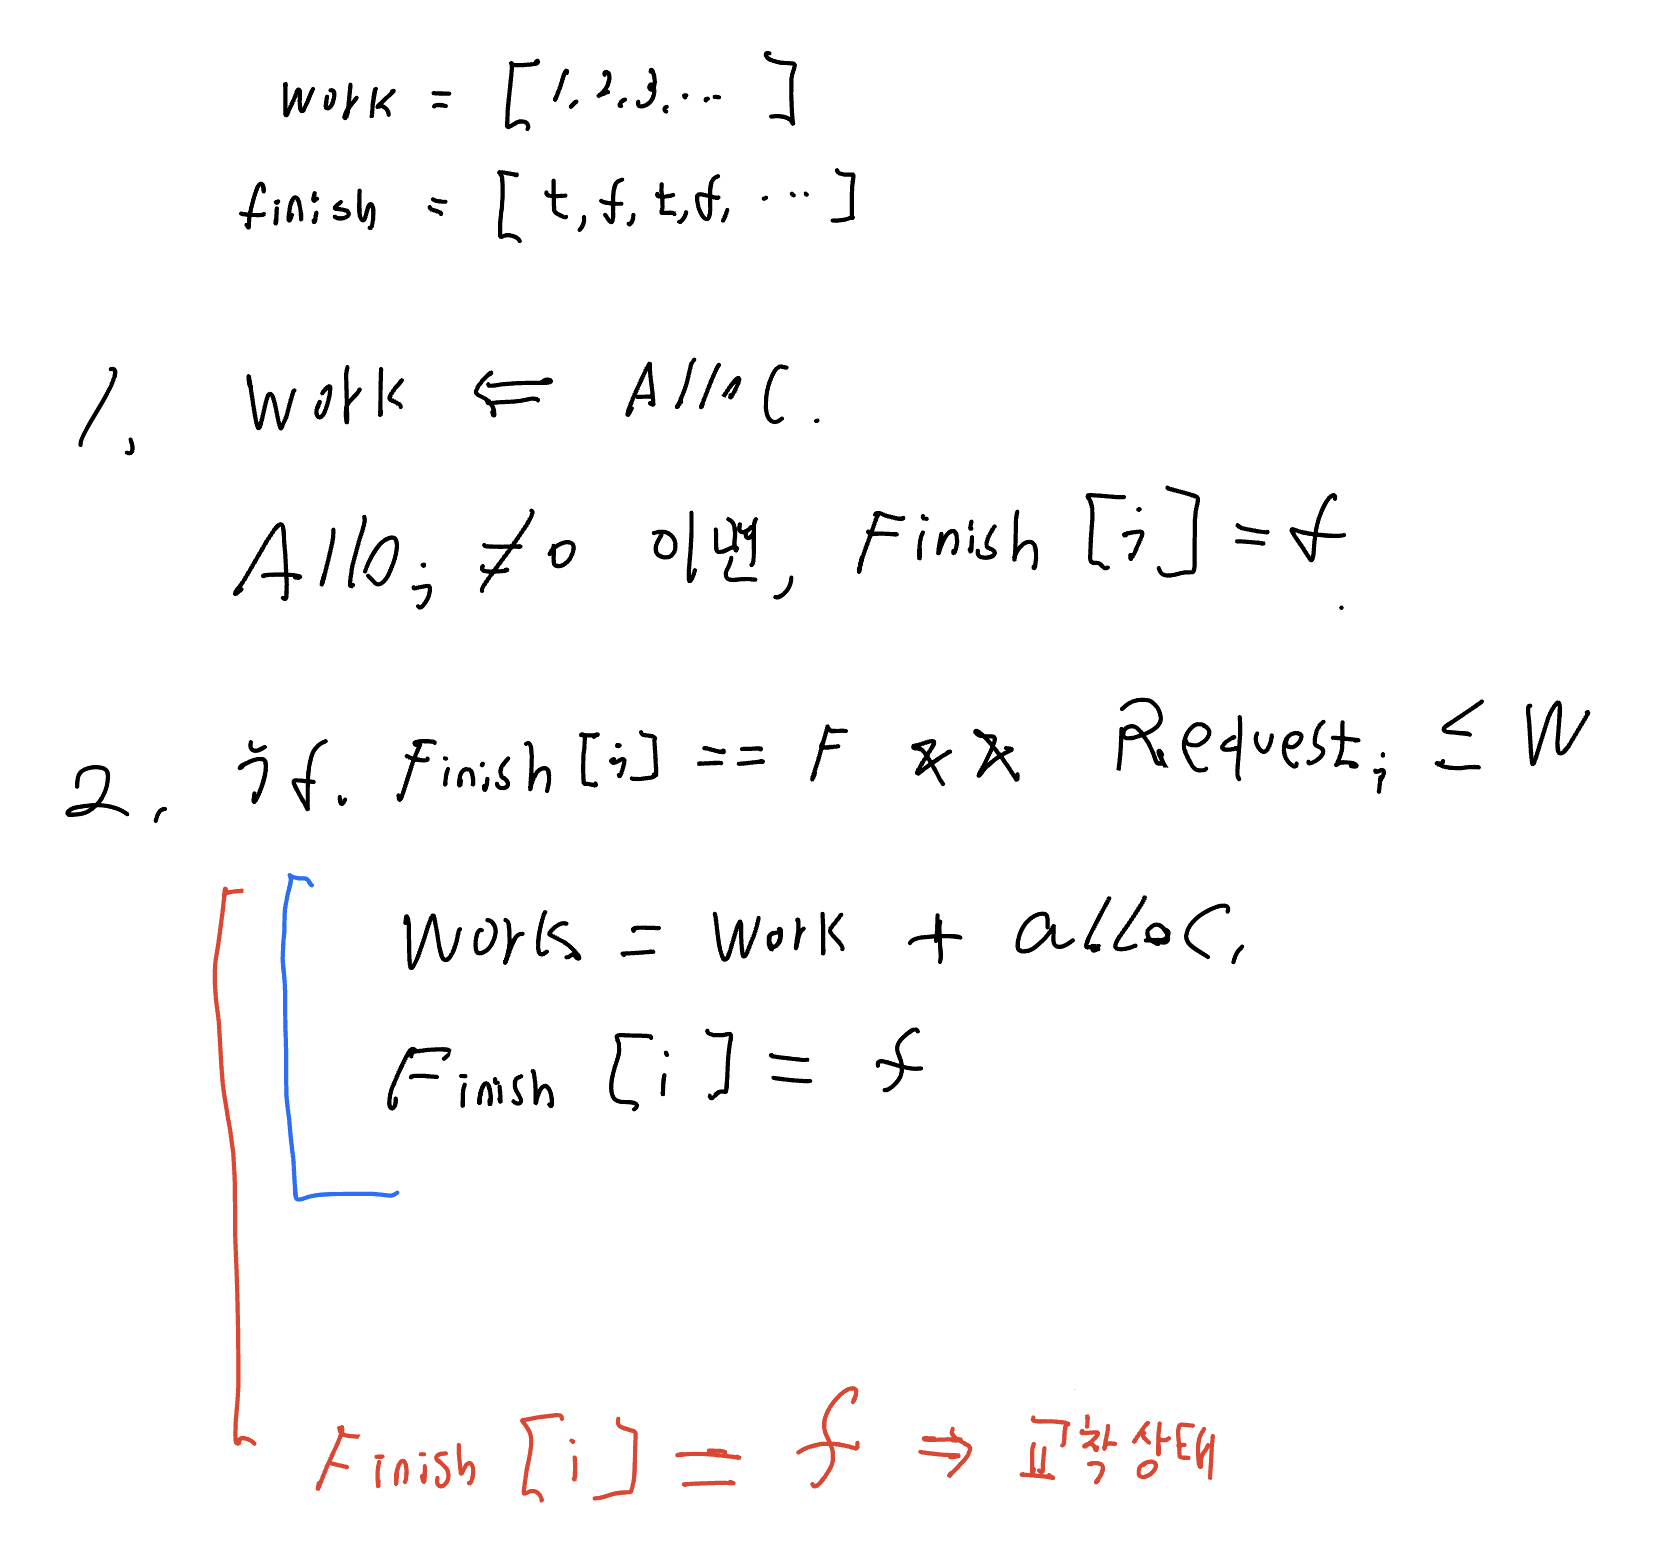 work = [1, 2, 3, ... ]
finish = [ t, f, t, f, ... ]
1. Work ⇐ Alloc.
Alloi ≠ 0 이면, Finish [i] = f.
2. if. Finish [i] == F ** Requesti ≤ W
Work = Work + alloc.
Finish [i] = f
Finish [i] = f ⇒ 교착상태